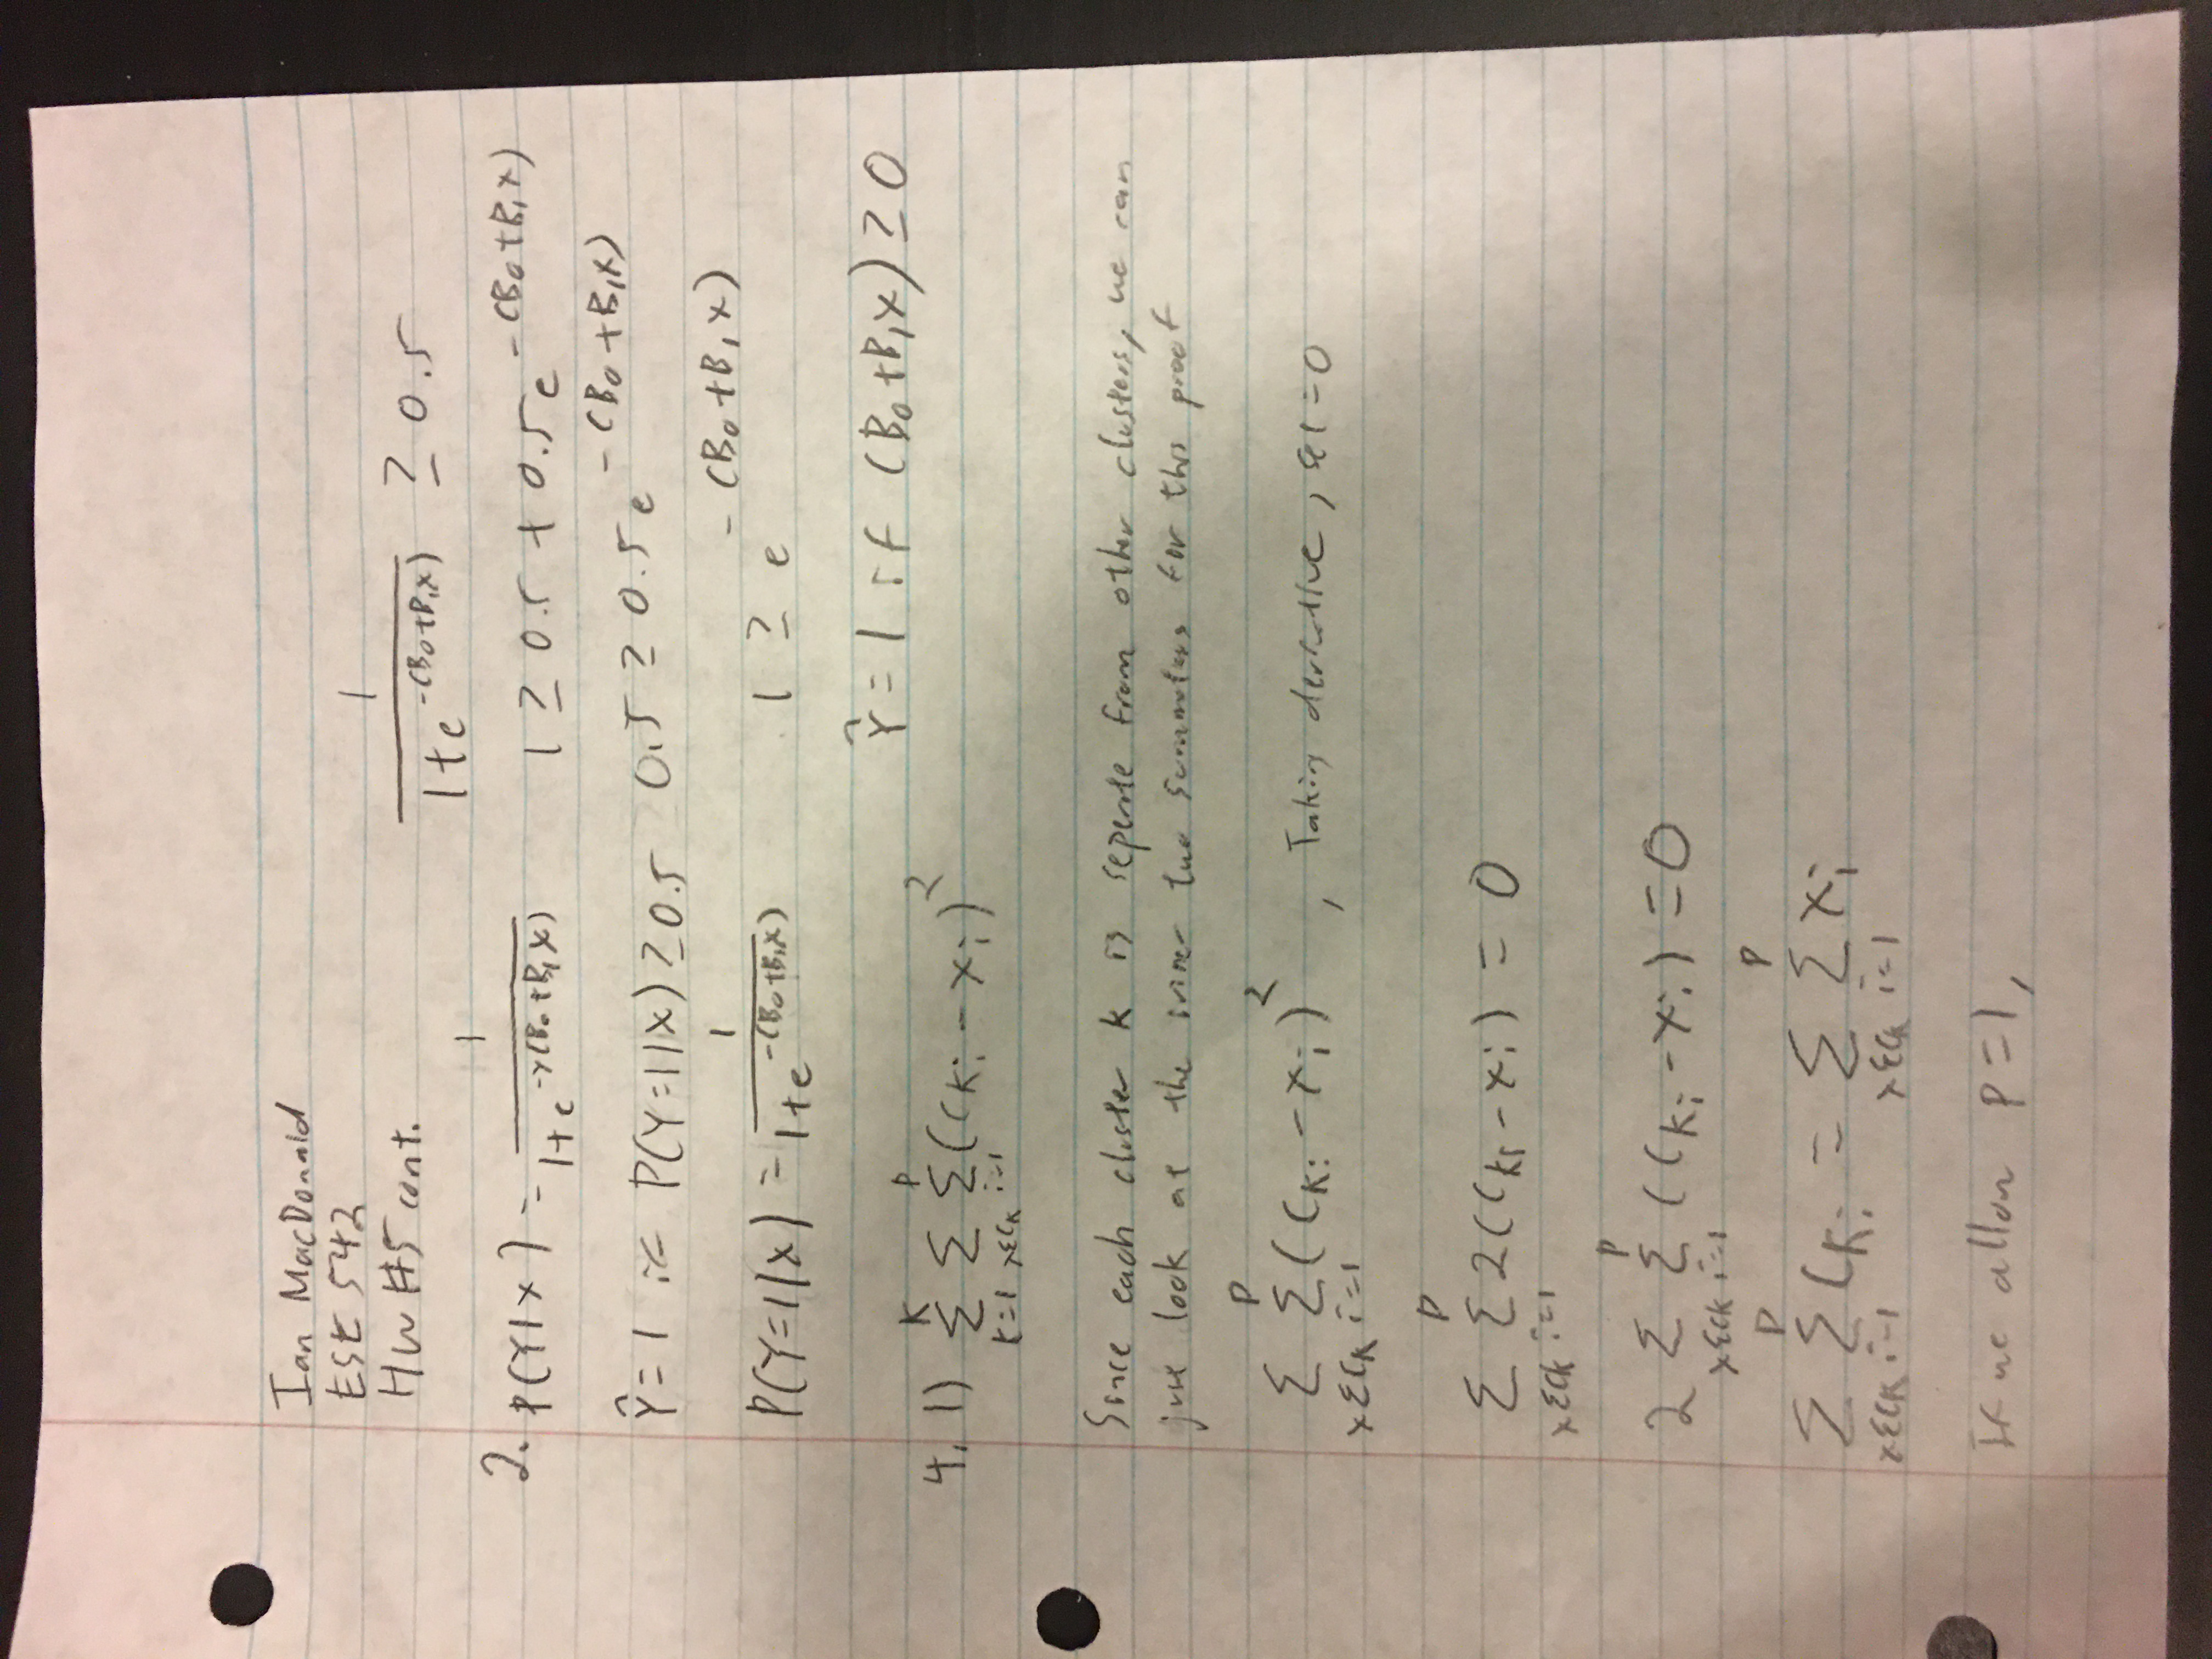 Ian MacDonald
ESE 542
HW #5 cont.
2. P(Y|X) = 1 / (1+e^{-Y(B₀+B₁X)})
Ŷ=1 if P(Y=1|X) ≥ 0.5
P(Y=1|X) = 1 / (1+e^{-(B₀+B₁X)})
1 / (1+e^{-(B₀+B₁X)}) ≥ 0.5
1 ≥ 0.5 + 0.5e^{-(B₀+B₁X)}
0.5 ≥ 0.5e^{-(B₀+B₁X)}
1 ≥ e^{-(B₀+B₁X)}
Ŷ=1 if (B₀+B₁X) ≥ 0
4. 1) Σ_{k=1}^{K} Σ_{x∈C_k} Σ_{i=1}^{P} (C_{ki} - x_i)²
Since each cluster k is seperate from other clusters, we can
just look at the inner two summations for this proof
Σ_{x∈C_k} Σ_{i=1}^{P} (C_{ki} - x_i)², Taking derivative, set=0
Σ_{x∈C_k} Σ_{i=1}^{P} 2(C_{ki} - x_i) = 0
2 Σ_{x∈C_k} Σ_{i=1}^{P} (C_{ki} - x_i) = 0
Σ_{x∈C_k} Σ_{i=1}^{P} C_{ki} = Σ_{x∈C_k} Σ_{i=1}^{P} x_i
If we allow P=1,